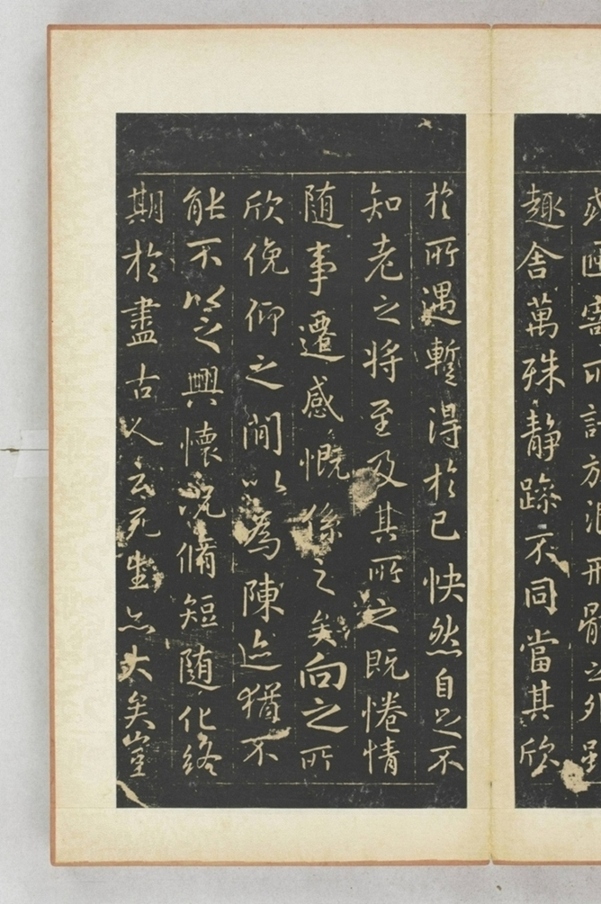 或因寄所託放浪形骸之外雖
趣舍萬殊靜躁不同當其欣
於所遇暫得於己快然自足不
知老之将至及其所之既惓情
随事遷感慨係之矣向之所
欣俛仰之間以為陳迹猶不
能不以之興懷況脩短随化終
期於盡古人云死生亦大矣豈